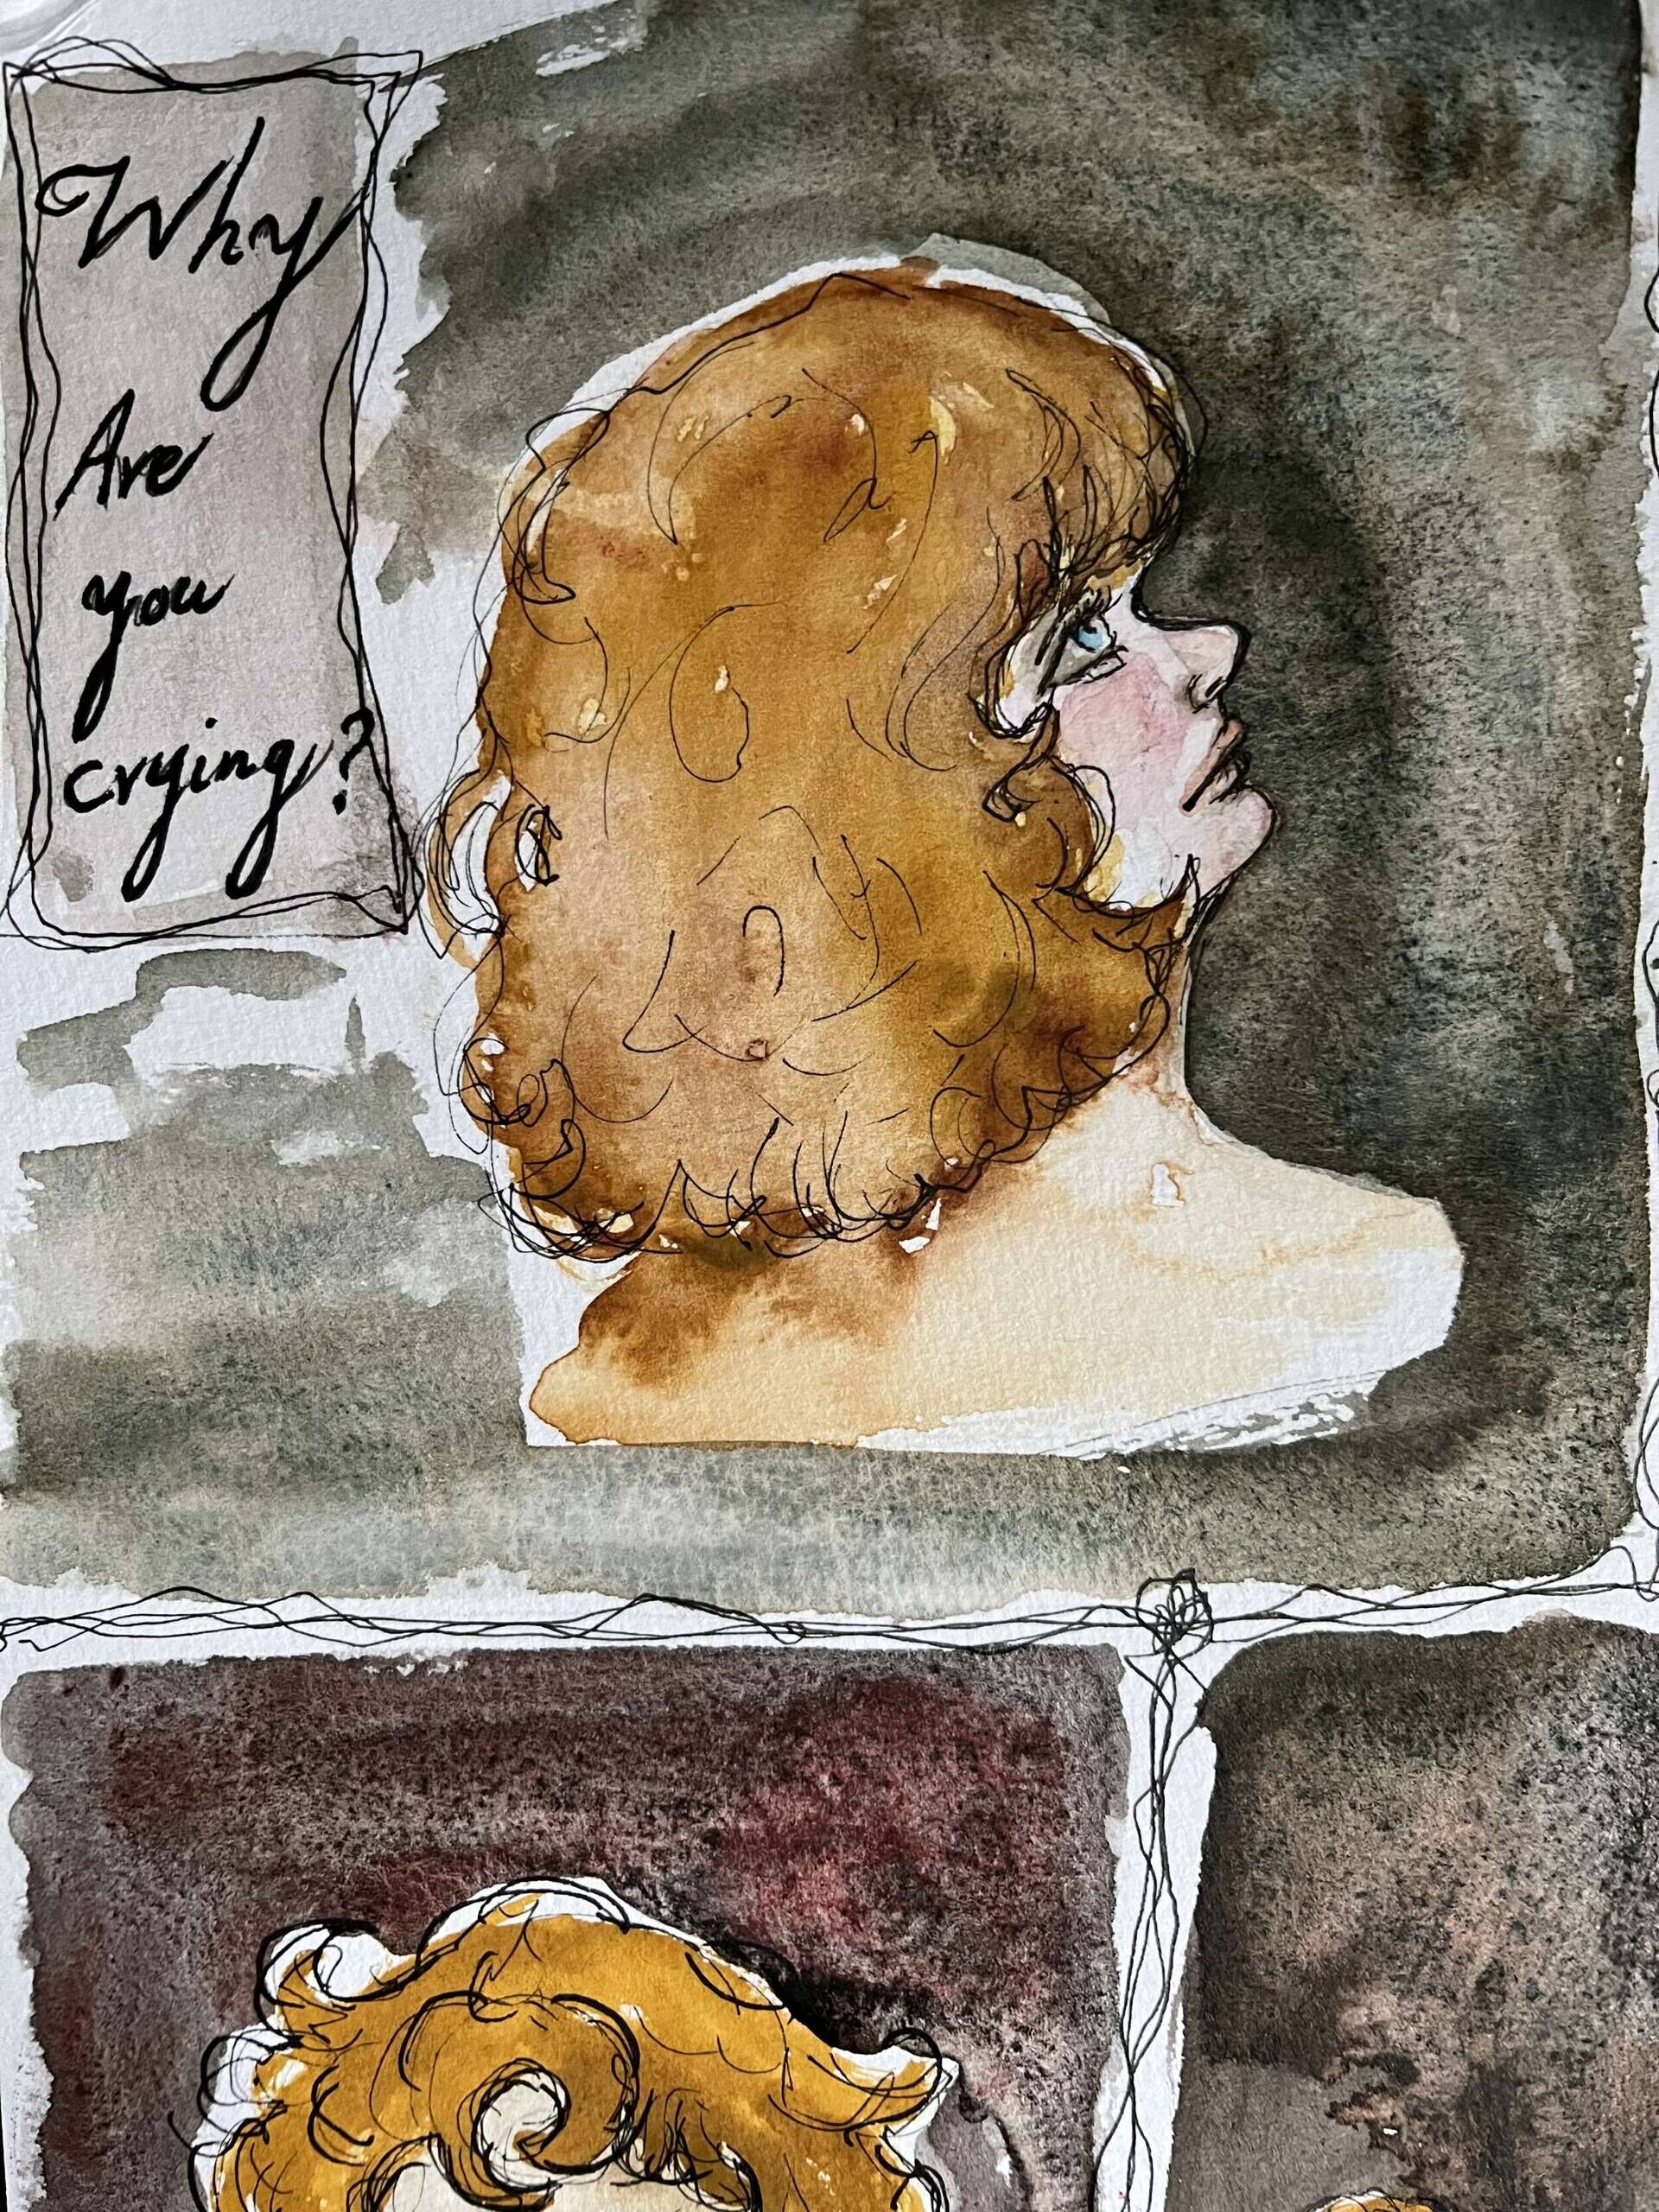 Why
Are
you
crying?